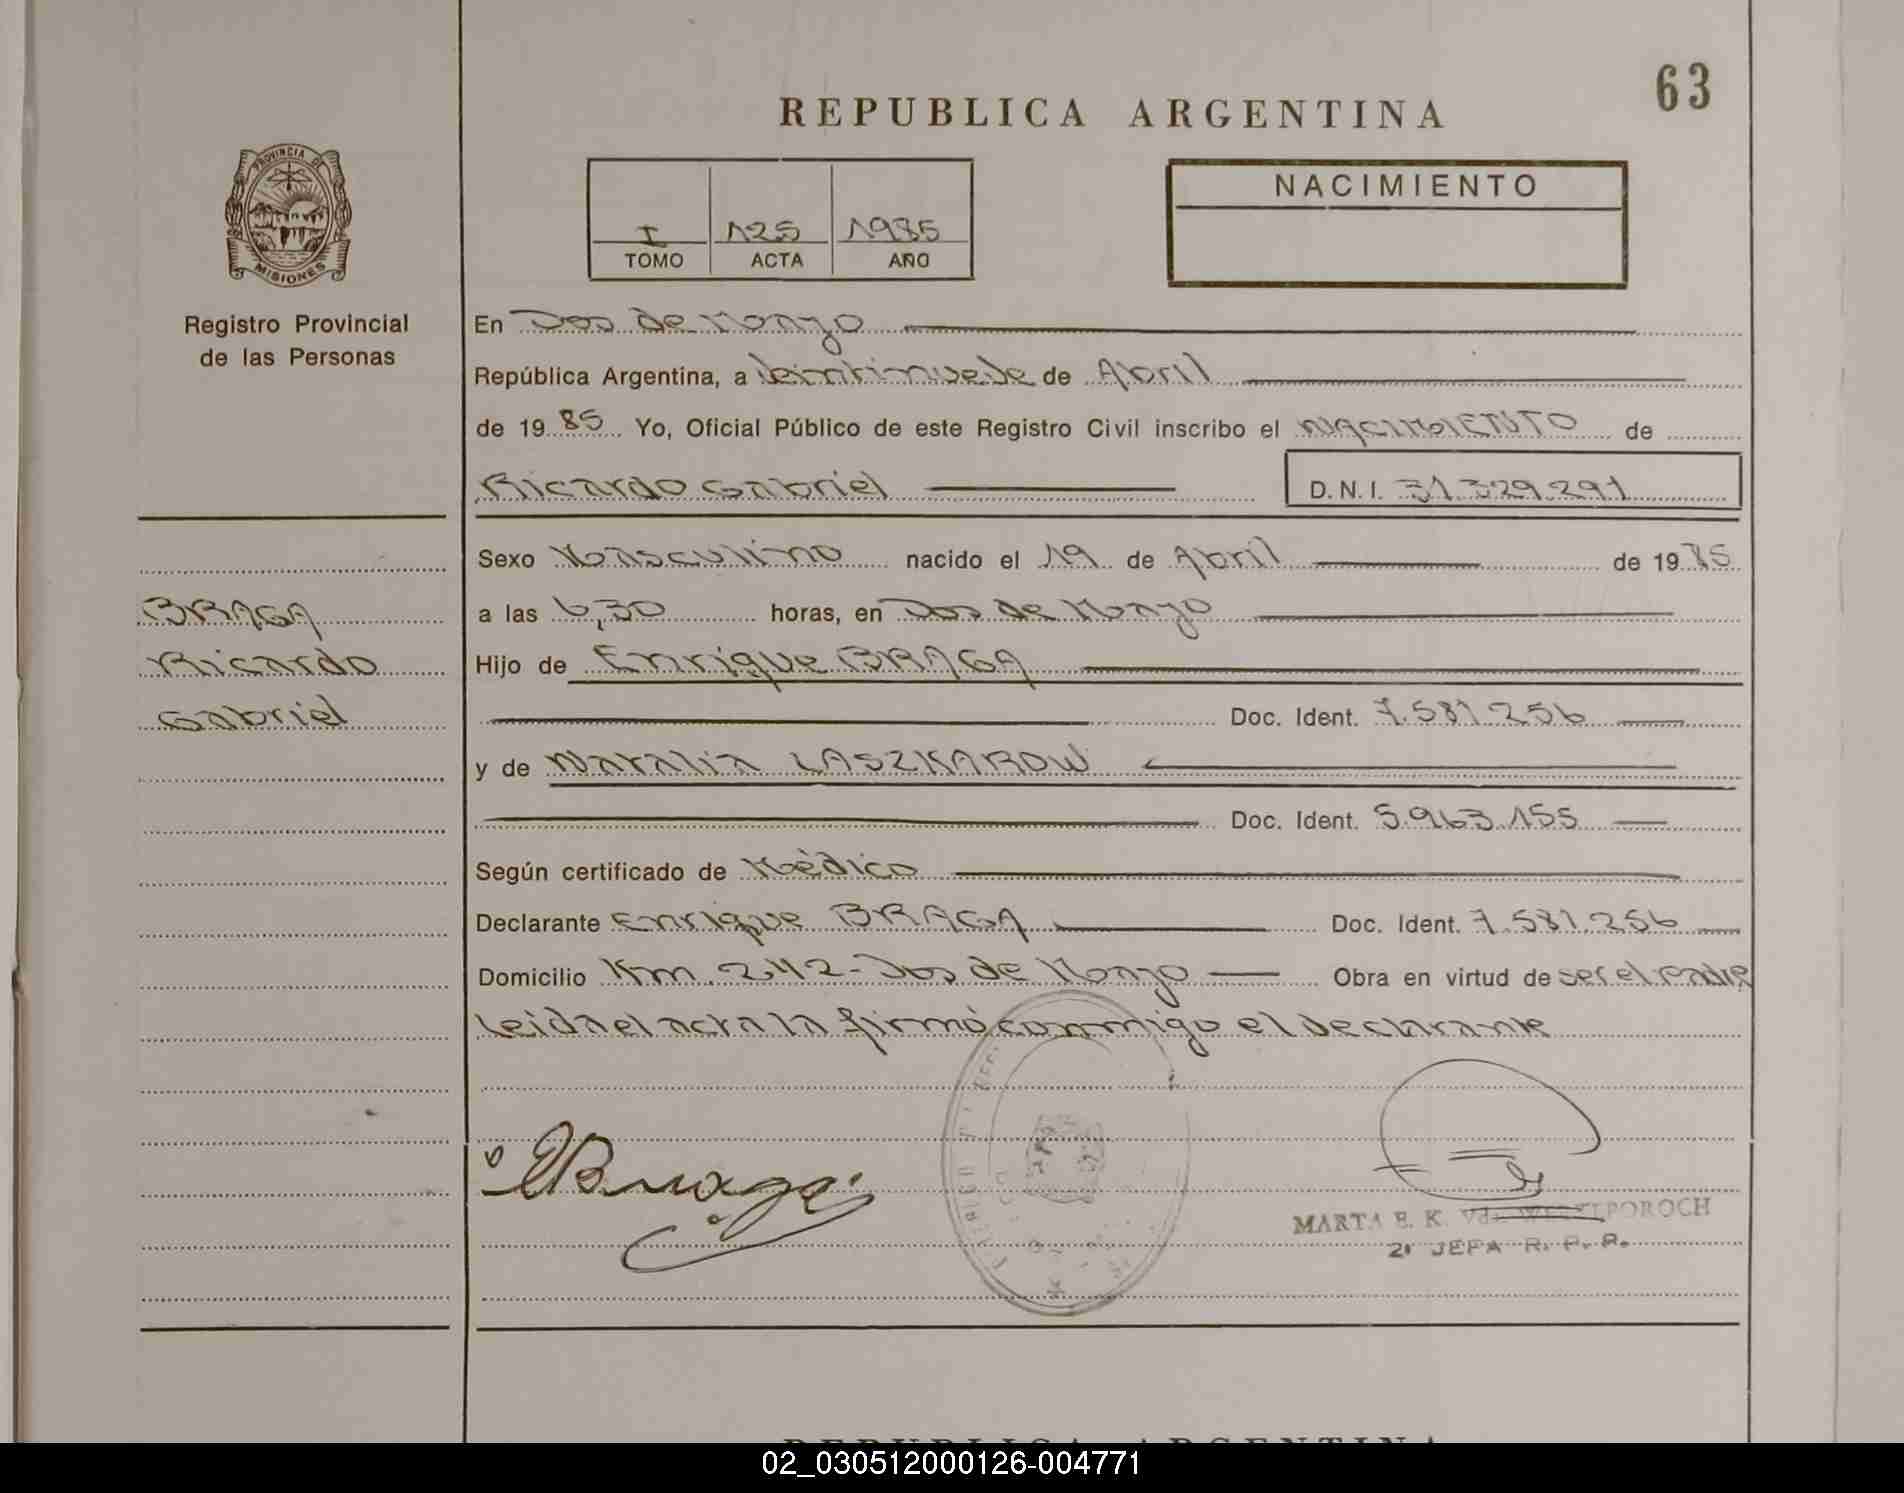 63
REPUBLICA ARGENTINA
PROVINCIA DE
MISIONES
Registro Provincial
de las Personas
I 125 1985
TOMO ACTA AÑO
NACIMIENTO
En Dos de Mayo
República Argentina, a Veintinueve de Abril
de 19 85 Yo, Oficial Público de este Registro Civil inscribo el NACIMIENTO de
Ricardo Gabriel D.N.I. 31.329.291
Sexo Masculino nacido el 19 de Abril de 19 85
BRAGA
Ricardo
Gabriel
a las 6,30 horas, en Dos de Mayo
Hijo de Enrique BRAGA
Doc. Ident. 7.581.256
y de Natalia LASZKAROW
Doc. Ident. 5.963.155
Según certificado de Médico
Declarante Enrique BRAGA Doc. Ident. 7.581.256
Domicilio Km. 242 - Dos de Mayo Obra en virtud de ser el padre
Leida el acta la firmó conmigo el declarante
EBraga
MARTA E. K. Vda.
2° JEFA R. P. P.
REPUBLICA ARGENTINA
02_030512000126-004771